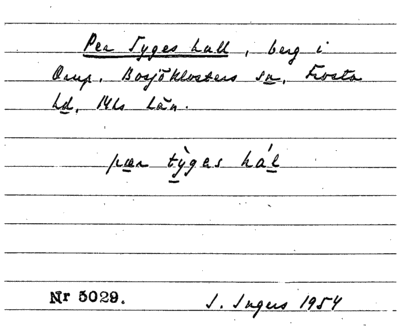 Per Tyges hall, berg i
Orup, Bosjöklosters sn, Frosta
hd, Mhs län.
pær tỳges hál
Nr 5029.
I. Ingers 1954